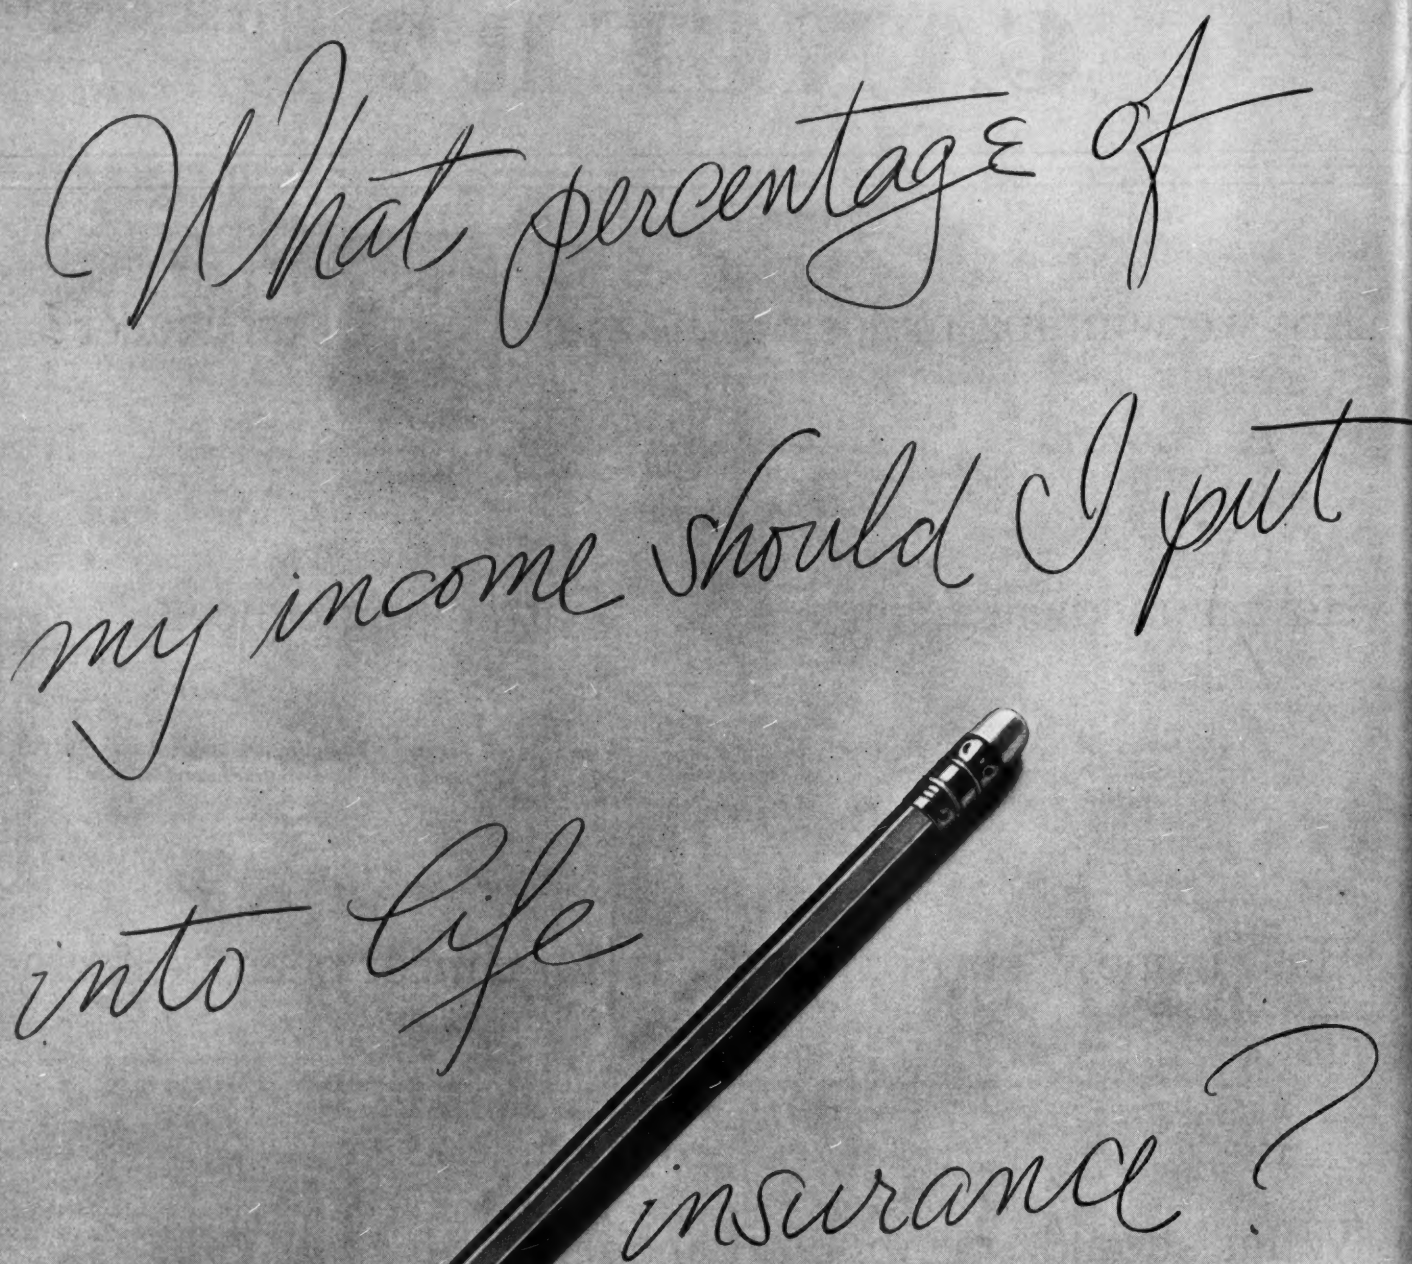 What percentage of
my income should I put
into life
insurance?